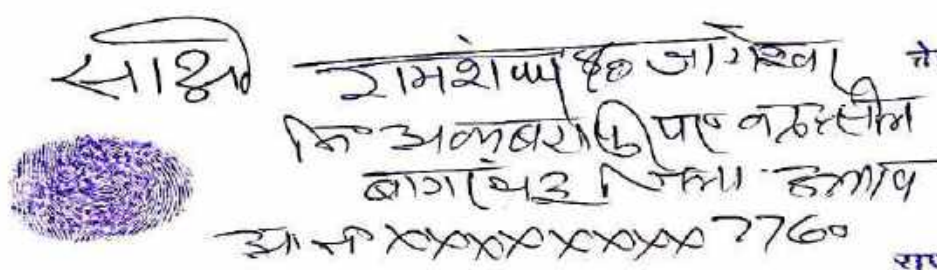 साक्षी रामशंकर S/o जागेश्वर
नि० अकबरपुर पर० व तहसील
बांगरमऊ जिला उन्नाव
आ० नं० XXXXXXXX7760